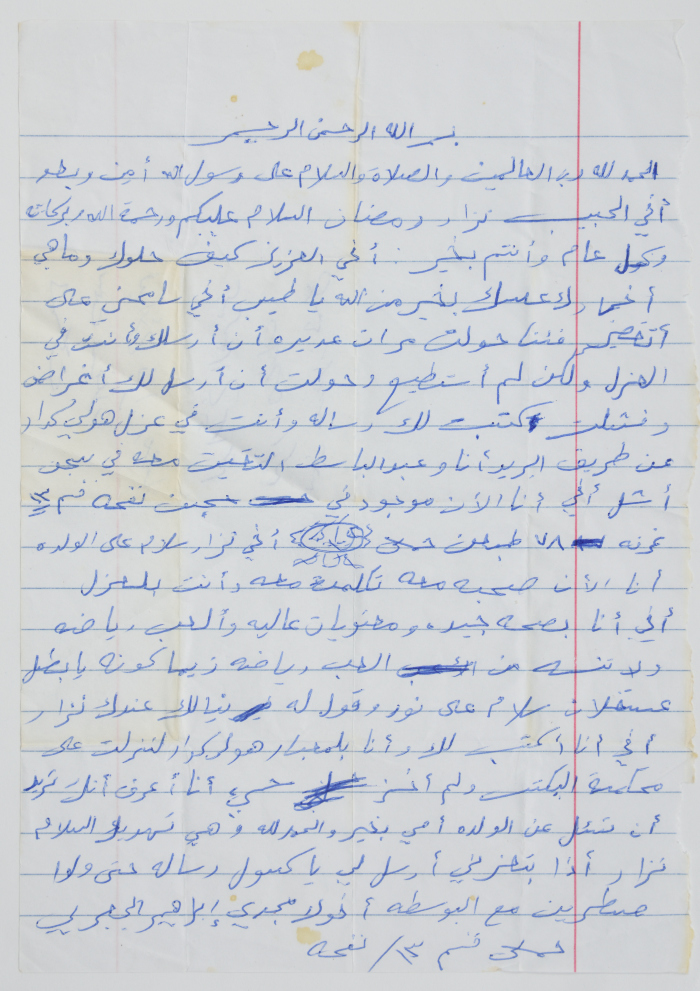 بسم الله الرحمن الرحيم
الحمد لله رب العالمين والصلاة والسلام على رسول الله أمين وبعد
أخي الحبيب نزار رمضان السلام عليكم ورحمة الله وبركاته
وكل عام وأنتم بخير : أخي العزيز كيف حلولك وماهي
أخبارك عساك بخير من الله يا طيب أخي سامحني على
فئنا حولت مرات عديده أن أرسلك وأنت في
العزل ولكن لم أستطيع وحولت أن أرسل لك أغراض
وفشلت كتبت لك رساله وأنت في عزل هولي كدار
عن طريق البريد أنا وعبد الباسط التقيت معه في سجن
أشل أخي أنا الأن موجود في سجن نفحه قسم ١٣
غرفه ٧٨ أخي نزار سلام على الولده
أنا الأن صحبه معه تكلمة معه وأنت بلعزل
أخي أنا بصحه جيده ومعنويات عاليه وألعب رياضه
ولا تنسه من العب رياضه زيما كونه يا بطل
عسقلان سلام على نور وقول له نيالك عندك نزار
أخي أنا أكتب لك وأنا بلمعبار هولي كدار لنزلت على
محكمة ولم أخسر شيء أنا أعرف أنك تريد
أن تسئل عن الولده أمي بخير والحمد لله وهي تهديك السلام
نزار أذا بتعزني أرسل لي يا كسول رساله حتى ولوا
صطرين مع البوسطه أخوك مجدي إبراهيم الجبربي
قسم ١٣ / نفحه